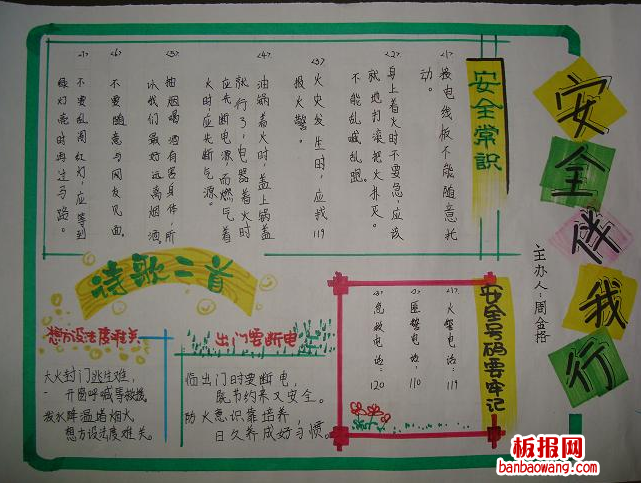 安全伴我行
主办人:周金格
安全常识
<1>接电线板不能随意托
动。
<2>身上着火时不要急,应该
就地打滚把火扑灭。
不能乱喊乱跑。
<3>火灾发生时,应找119
报火警。
<4>油锅着火时,盖上锅盖
就行了,电器着火时
应先断电源,而燃气着
火时应先断气源。
<5>抽烟喝酒有害身体,所
以我们最好远离烟酒。
<6>不要随意与网友见面。
<7>不要乱闯红灯,应等到
绿灯亮时再过马路。
安全号码要牢记
<1>火警电话:119
<2>匪警电话:110
<3>急救电话:120
诗歌二首
出门要断电
临出门时要断电,
既节约来又安全。
防火意识靠培养,
日久养成好习惯。
想方设法度难关
大火封门逃生难,
开窗呼喊等救援
泼水降温堵烟火
想方设法度难关。
板报网
banbaowang.com